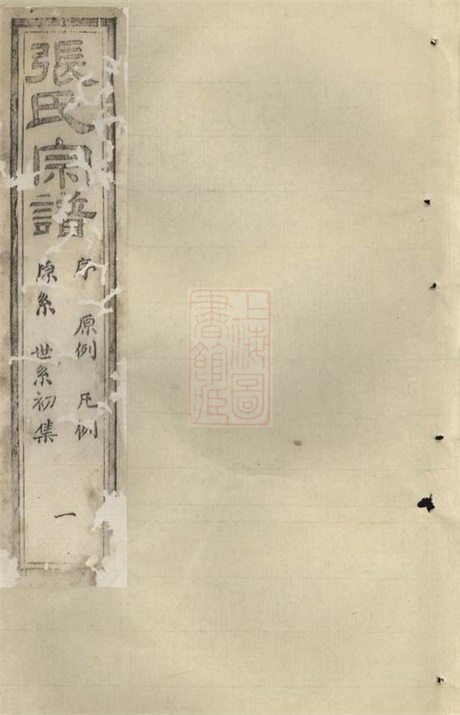 張氏宗譜
序 原例 凡例
原系 世系初集
一
上海圖
書館藏